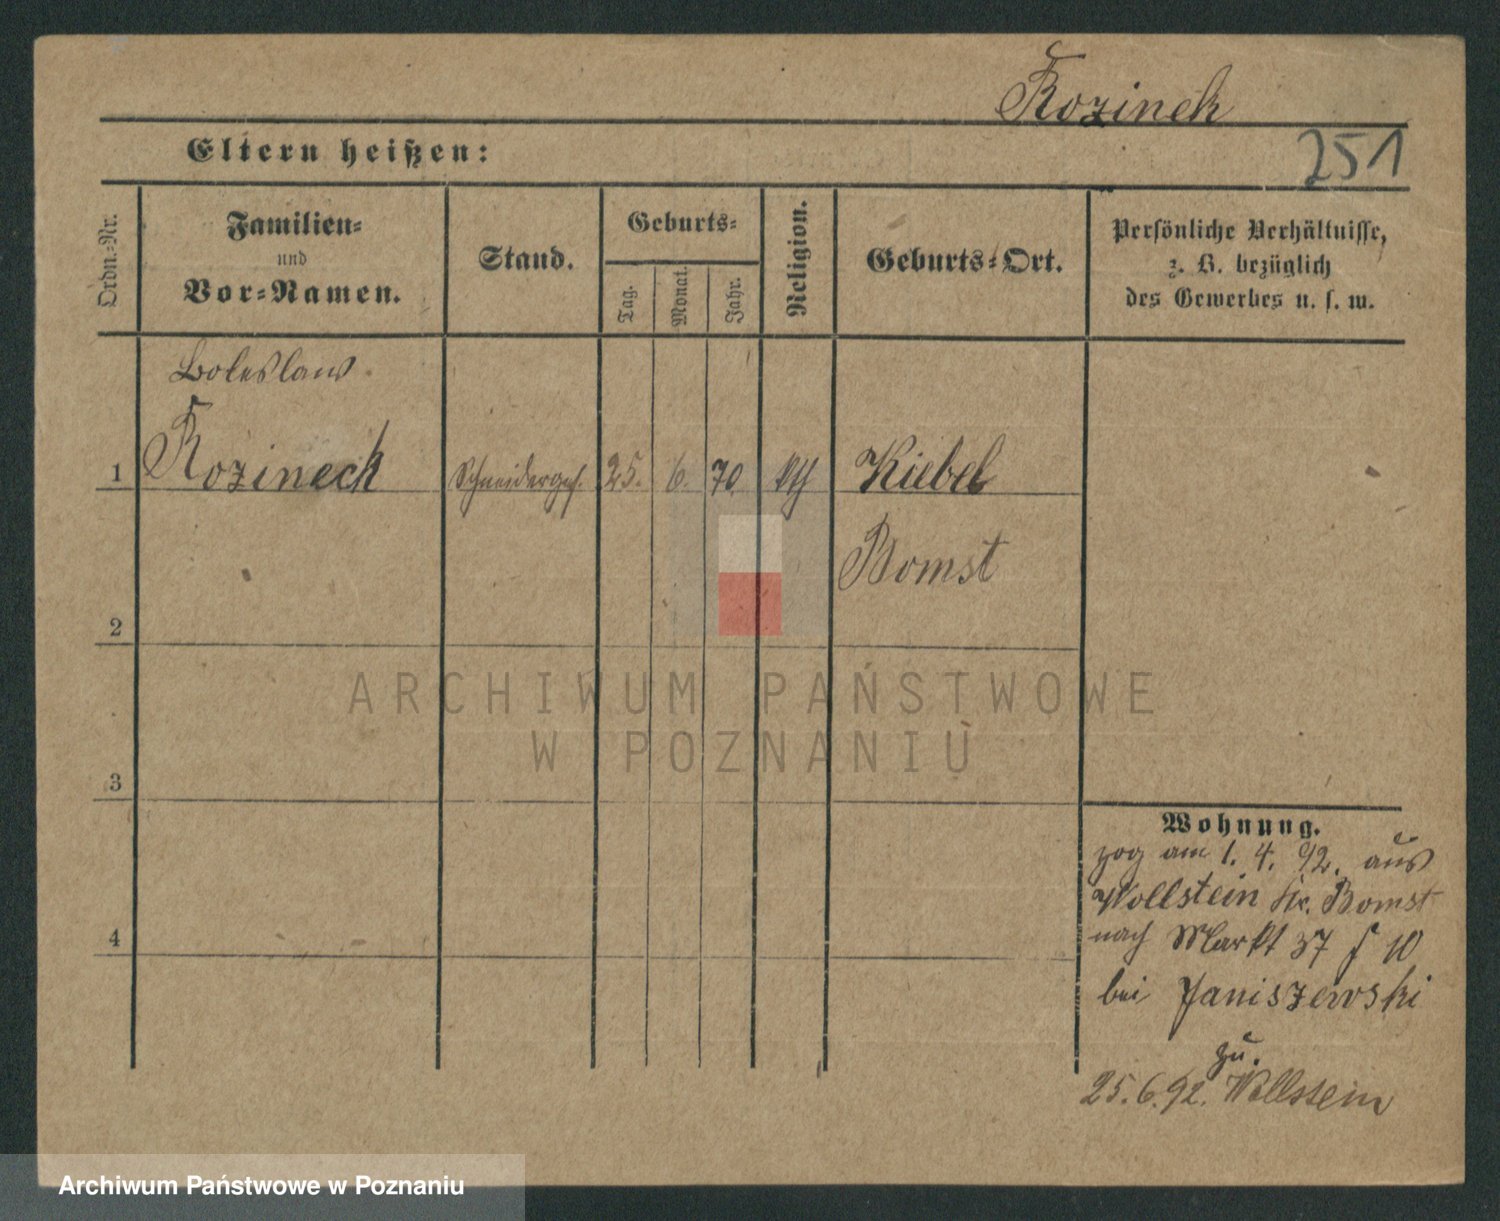 Rozinek
251
Eltern heißen:
Ordn.-Nr.
Familien-
und
Vor-Namen.
Stand.
Geburts-
Tag.
Monat.
Jahr.
Religion.
Geburts-Ort.
Persönliche Verhältnisse,
z. B. bezüglich
des Gewerbes u. s. w.
Boleslaus
1 Rozineck Schneiderges. 25. 6. 70. kth Kiebel
Bomst
2
3
4
Wohnung.
zog am 1. 4. 92. aus
Wollstein Kr. Bomst
nach Markt 37 10
bei Janiszewski
zu.
25.6.92. Wollstein
ARCHIWUM PAŃSTWOWE
W POZNANIU
Archiwum Państwowe w Poznaniu